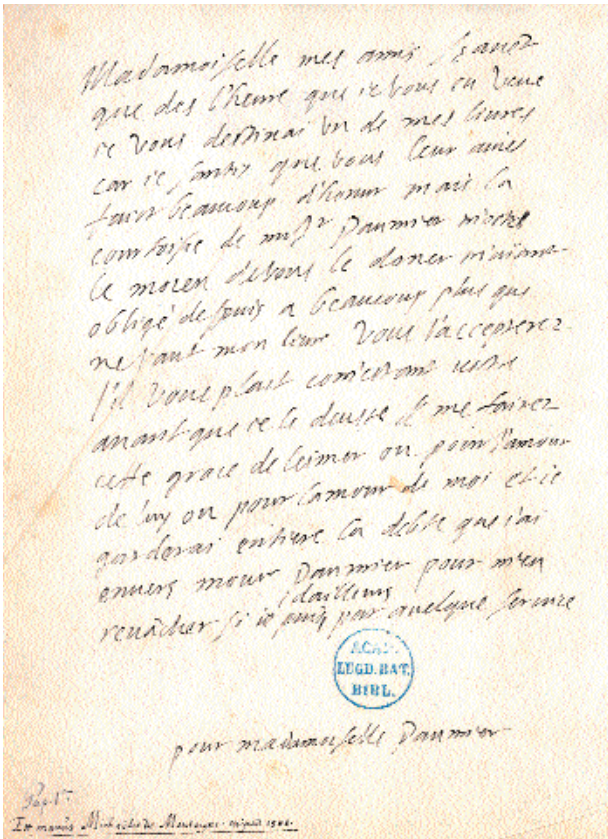 Madamoiselle mes amis sçavët
que des l'heure que ie vous eu veue
ie vous destinai un de mes livres
car ie santis que vous leur aviés
faict beaucoup d'honur mais la
courtoisie de monsr Paumier m'oste
le moien de vous le doner m'aiant
obligé despuis a beaucoup plus que
ne vaut mon livre vous l'accepterez
s'il vous plaist com'estant vostre
avant que ie le deusse & me fairez
cette grace de l'eimer ou pour l'amour
de luy ou pour l'amour de moi et ie
garderai entiere la debte que i'ai
envers monsr Paumier pour m'en
revãcher si ie puis dailleurs par quelque service
ACAD.
LUGD. BAT.
BIBL.
pour madamoiselle Paumier
Est manus